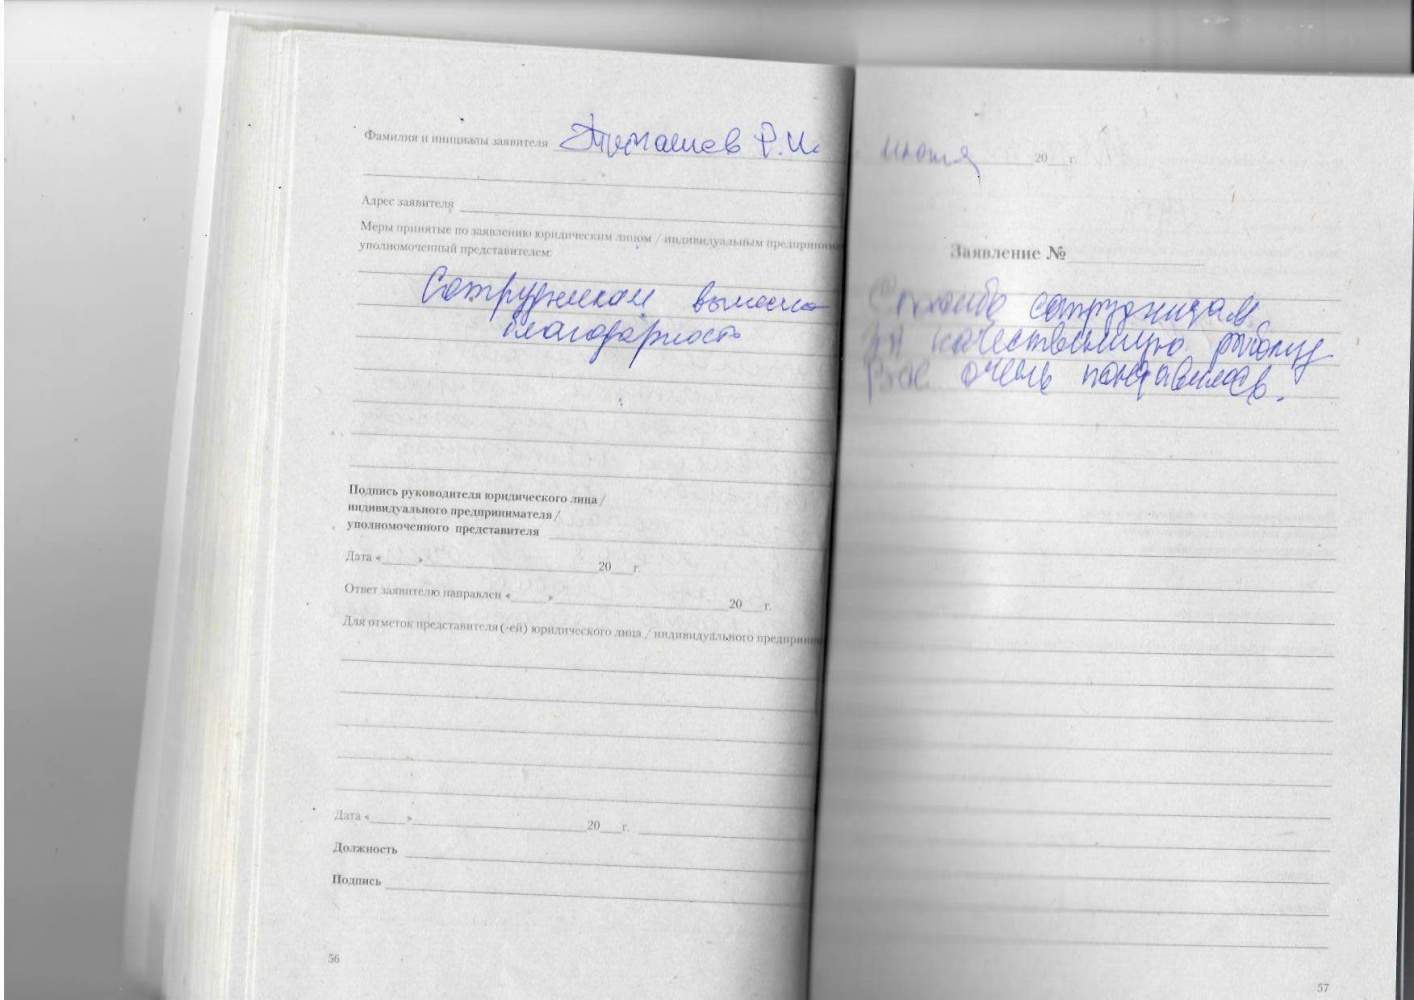 Фамилия и инициалы заявителя Тимашев Р.И.
Адрес заявителя
Меры принятые по заявлению юридическим лицом / индивидуальным
уполномоченный представителем:
Сотрудникам
благодарность
Подпись руководителя юридического лица /
индивидуального предпринимателя /
уполномоченного представителя
Дата «______»______20___г.
Ответ заявителю направлен «______»______20___г.
Для отметок представителя (-ей) юридического лица / индивидуального
Дата «______»______20___г.
Должность
Подпись
56
июля 20___г.
Заявление №
Спасибо сотрудницам
за качественную работу
Все очень понравилось.
57